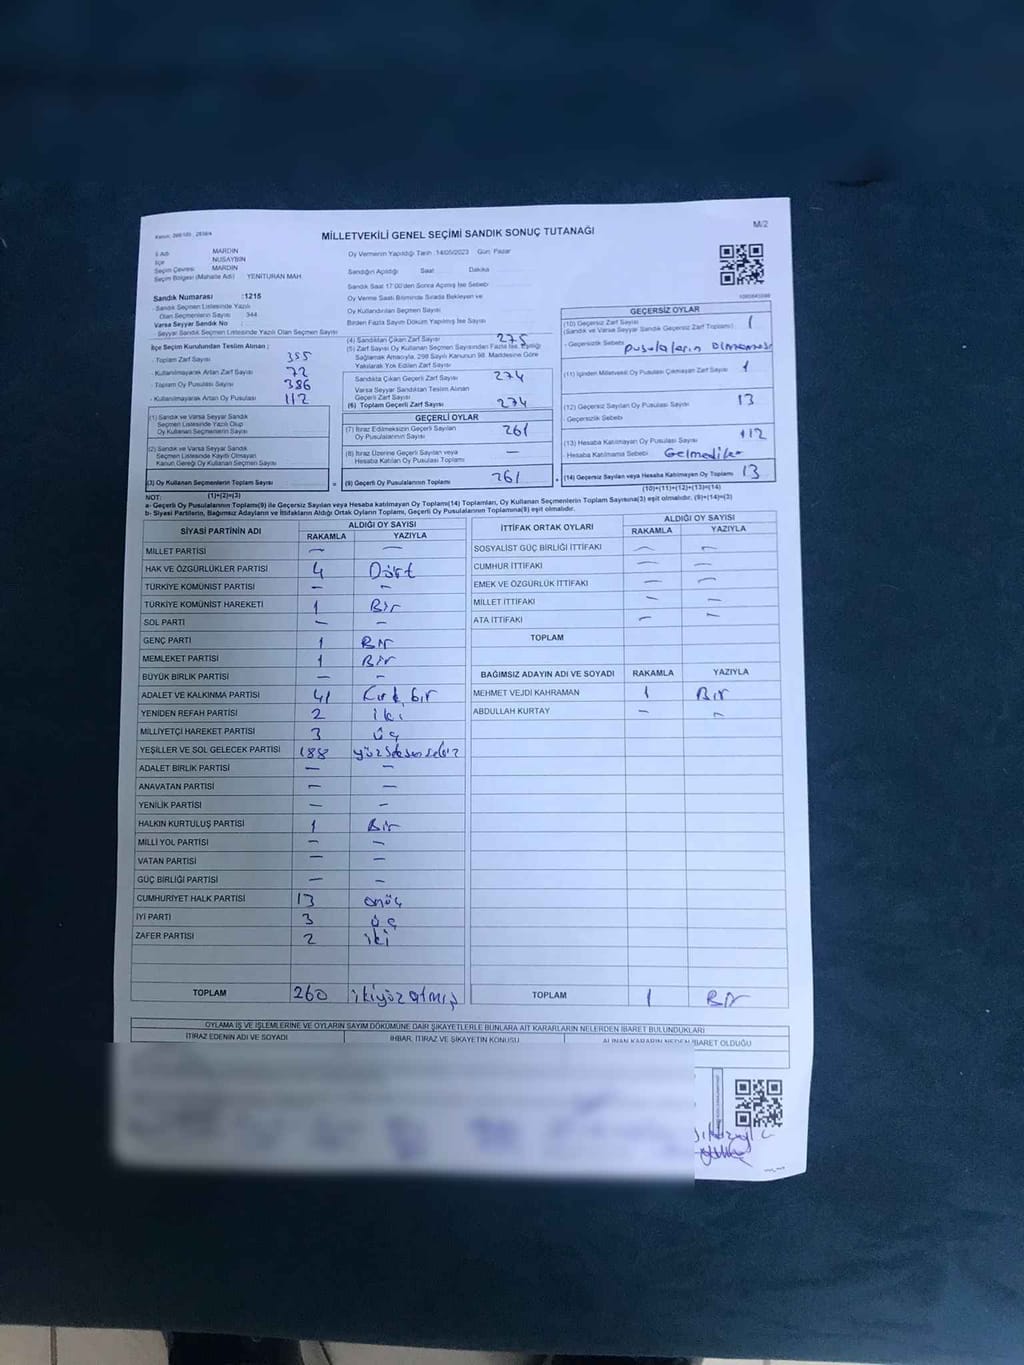 MİLLETVEKİLİ GENEL SEÇİMİ SANDIK SONUÇ TUTANAĞI
M/2
İl Adı MARDİN
İlçe NUSAYBİN
Seçim Çevresi MARDİN
Seçim Bölgesi (Mahalle Adı) YENİTURAN MAH.
Sandık Numarası :1215
- Sandık Seçmen Listesinde Yazılı
Olan Seçmenlerin Sayısı 344
Varsa Seyyar Sandık No :
Seyyar Sandık Seçmen Listesinde Yazılı Olan Seçmen Sayısı
Oy Vermenin Yapıldığı Tarih :14/05/2023 Gün: Pazar
Sandığın Açıldığı Saat: Dakika
Sandık Saat 17:00'den Sonra Açılmış İse Sebebi
Oy Verme Saati Bitiminde Sırada Bekleyen ve
Oy Kullandırılan Seçmen Sayısı
Birden Fazla Sayım Döküm Yapılmış İse Sayısı
İlçe Seçim Kurulundan Teslim Alınan ;
- Toplam Zarf Sayısı 355
- Kullanılmayarak Artan Zarf Sayısı 72
- Toplam Oy Pusulası Sayısı 386
- Kullanılmayarak Artan Oy Pusulası 112
(1) Sandık ve Varsa Seyyar Sandık
Seçmen Listesinde Yazılı Olup
Oy Kullanan Seçmenlerin Sayısı
(2) Sandık ve Varsa Seyyar Sandık
Seçmen Listesinde Kayıtlı Olmayan
Kanun Gereği Oy Kullanan Seçmen Sayısı
(3) Oy Kullanan Seçmenlerin Toplam Sayısı =
(1)+(2)=(3)
(4) Sandıktan Çıkan Zarf Sayısı 275
(5) Zarf Sayısı Oy Kullanan Seçmen Sayısından Fazla İse, Eşitliği
Sağlamak Amacıyla, 298 Sayılı Kanunun 98. Maddesine Göre
Yakılarak Yok Edilen Zarf Sayısı
Sandıkta Çıkan Geçerli Zarf Sayısı 274
Varsa Seyyar Sandıktan Teslim Alınan
Geçerli Zarf Sayısı
(6) Toplam Geçerli Zarf Sayısı 274
GEÇERLİ OYLAR
(7) İtiraz Edilmeksizin Geçerli Sayılan
Oy Pusulalarının Sayısı 261
(8) İtiraz Üzerine Geçerli Sayılan veya
Hesaba Katılan Oy Pusulaları Toplamı —
(9) Geçerli Oy Pusulalarının Toplamı 261 +
GEÇERSİZ OYLAR
(10) Geçersiz Zarf Sayısı
(Sandık ve Varsa Seyyar Sandık Geçersiz Zarf Toplamı) 1
- Geçersizlik Sebebi pusulaların olmaması
(11) İçinden Milletvekili Oy Pusulası Çıkmayan Zarf Sayısı 1
(12) Geçersiz Sayılan Oy Pusulası Sayısı 13
- Geçersizlik Sebebi
(13) Hesaba Katılmayan Oy Pusulası Sayısı 112
- Hesaba Katılmama Sebebi Gelmediler
(14) Geçersiz Sayılan veya Hesaba Katılmayan Oy Toplamı 13
(10)+(11)+(12)+(13)=(14)
NOT:
a- Geçerli Oy Pusulalarının Toplamı(9) ile Geçersiz Sayılan veya Hesaba Katılmayan Oy Toplamı(14) Toplamları, Oy Kullanan Seçmenlerin Toplam Sayısına(3) eşit olmalıdır. (9)+(14)=(3)
b- Siyasi Partilerin, Bağımsız Adayların ve İttifakların Aldığı Ortak Oyların Toplamı, Geçerli Oy Pusulalarının Toplamına(9) eşit olmalıdır.
SİYASİ PARTİNİN ADI ALDIĞI OY SAYISI
RAKAMLA YAZIYLA
MİLLET PARTİSİ — —
HAK VE ÖZGÜRLÜKLER PARTİSİ 4 Dört
TÜRKİYE KOMÜNİST PARTİSİ — —
TÜRKİYE KOMÜNİST HAREKETİ 1 Bir
SOL PARTİ — —
GENÇ PARTİ 1 Bir
MEMLEKET PARTİSİ 1 Bir
BÜYÜK BİRLİK PARTİSİ — —
ADALET VE KALKINMA PARTİSİ 41 Kırk bir
YENİDEN REFAH PARTİSİ 2 iki
MİLLİYETÇİ HAREKET PARTİSİ 3 üç
YEŞİLLER VE SOL GELECEK PARTİSİ 188 yüzseksensekiz
ADALET BİRLİK PARTİSİ — —
ANAVATAN PARTİSİ — —
YENİLİK PARTİSİ — —
HALKIN KURTULUŞ PARTİSİ 1 Bir
MİLLİ YOL PARTİSİ — —
VATAN PARTİSİ — —
GÜÇ BİRLİĞİ PARTİSİ — —
CUMHURİYET HALK PARTİSİ 13 onüç
İYİ PARTİ 3 üç
ZAFER PARTİSİ 2 iki
TOPLAM 260 ikiyüz atmış
İTTİFAK ORTAK OYLARI ALDIĞI OY SAYISI
RAKAMLA YAZIYLA
SOSYALİST GÜÇ BİRLİĞİ İTTİFAKI — —
CUMHUR İTTİFAKI — —
EMEK VE ÖZGÜRLÜK İTTİFAKI — —
MİLLET İTTİFAKI — —
ATA İTTİFAKI — —
TOPLAM
BAĞIMSIZ ADAYIN ADI VE SOYADI RAKAMLA YAZIYLA
MEHMET VEJDİ KAHRAMAN 1 Bir
ABDULLAH KURTAY — —
TOPLAM 1 Bir
OYLAMA İŞ VE İŞLEMLERİNE VE OYLARIN SAYIM DÖKÜMÜNE DAİR ŞİKAYETLERLE BUNLARA AİT KARARLARIN NELERDEN İBARET BULUNDUKLARI
İTİRAZ EDENİN ADI VE SOYADI İHBAR, İTİRAZ VE ŞİKAYETİN KONUSU ALINAN KARARIN NEDEN İBARET OLDUĞU